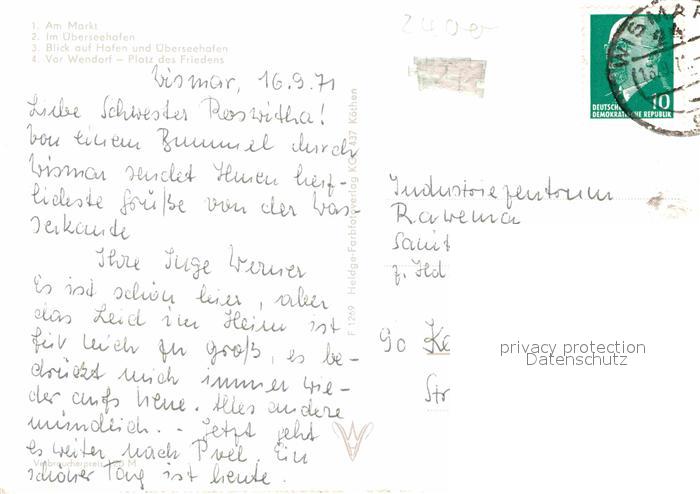 1. Am Markt
2. Im Überseehafen
3. Blick auf Hafen und Überseehafen
4. Vor Wendorf – Platz des Friedens
Wismar, 16.9.71
Liebe Schwester Roswitha!
Von einem Bummel durch
Wismar sendet Ihnen herz-
lichste Grüße von der Was-
serkante
Ihre Inge Werner
Es ist schön hier, aber
das Leid im Heim ist
für mich zu groß, es be-
drückt mich immer wie-
der aufs neue. Alles andere
mündlich. - Jetzt geht
es weiter nach Poel. Ein
schöner Tag ist heute.
Verbraucherpreis M
F 1269 Heldge-Farbfotoverlag KG 437 Köthen
2400
WISMAR
DEUTSCHE
DEMOKRATISCHE REPUBLIK
10
Industriezentrum
Rawema
Sanit
z. Hd
90 Ka
Str
privacy protection
Datenschutz